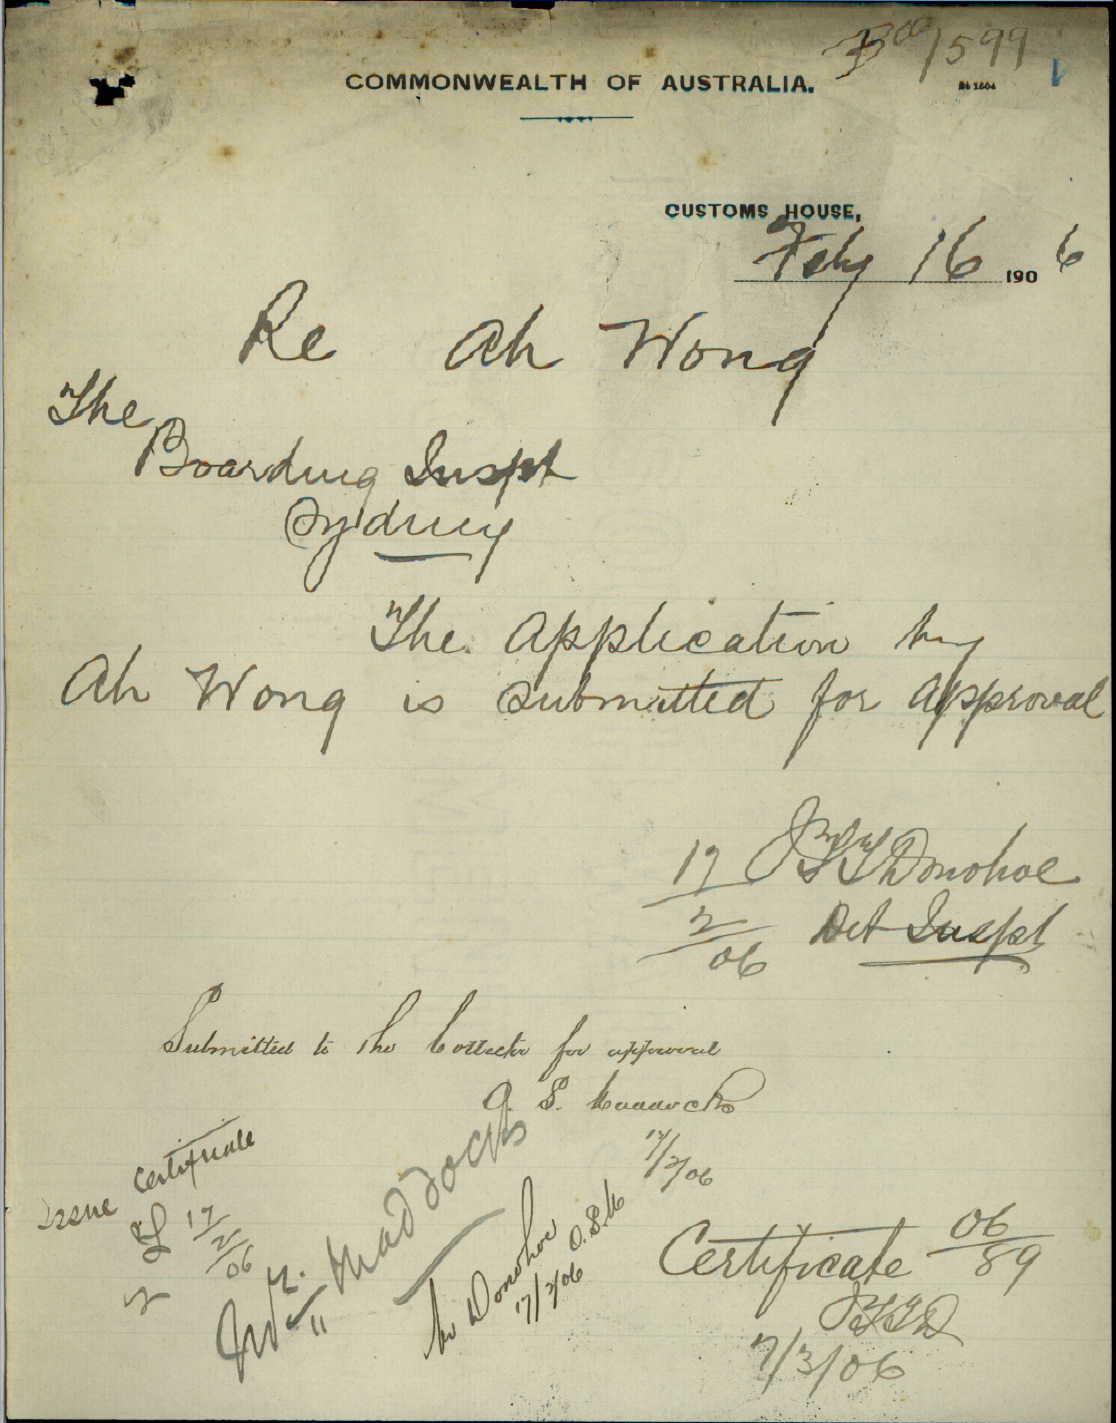 06/1599
COMMONWEALTH OF AUSTRALIA.
CUSTOMS HOUSE,
Feby 16 1906
Re Ah Wong
The
Boarding Inspt
Sydney
The Application by
Ah Wong is submitted for approval
17/2/06 Donohoe
Det Inspt
Submitted to the Collector for approval
A. S. Maddocks
17/2/06
Issue Certificate
17/2/06
Mr. Maddocks
Mr Donohoe
17/2/06
Certificate 06/89
7/3/06